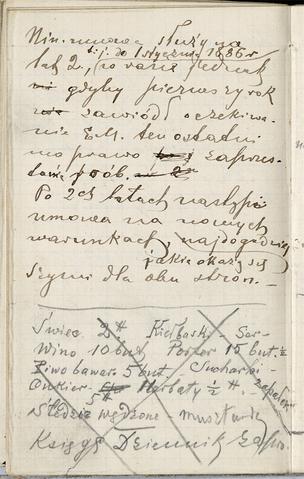 Nin. umowa służy na
t. j. do 1 stycznia 1886 r
lat 2, po razie jednak
gdyby pierwszy rok
zawiódł oczekiwa-
nie E.M. ten ostatni
ma prawo zaprze-
stania prób.
Po 2ch latach nastąpi
umowa na nowych
warunkach, najdogodniej
jakie okażą się
szymi dla obu stron. —
Świec 2 # Kiełbaski - Ser -
Wino 10 but Porter 15 but. ½
Piwo bawar. 5 but. Sucharki -
Cukier 5 # Herbaty ½ #. zapałek
Śledzie wędzone - musztarda
Księgę Dziennik Zapo.